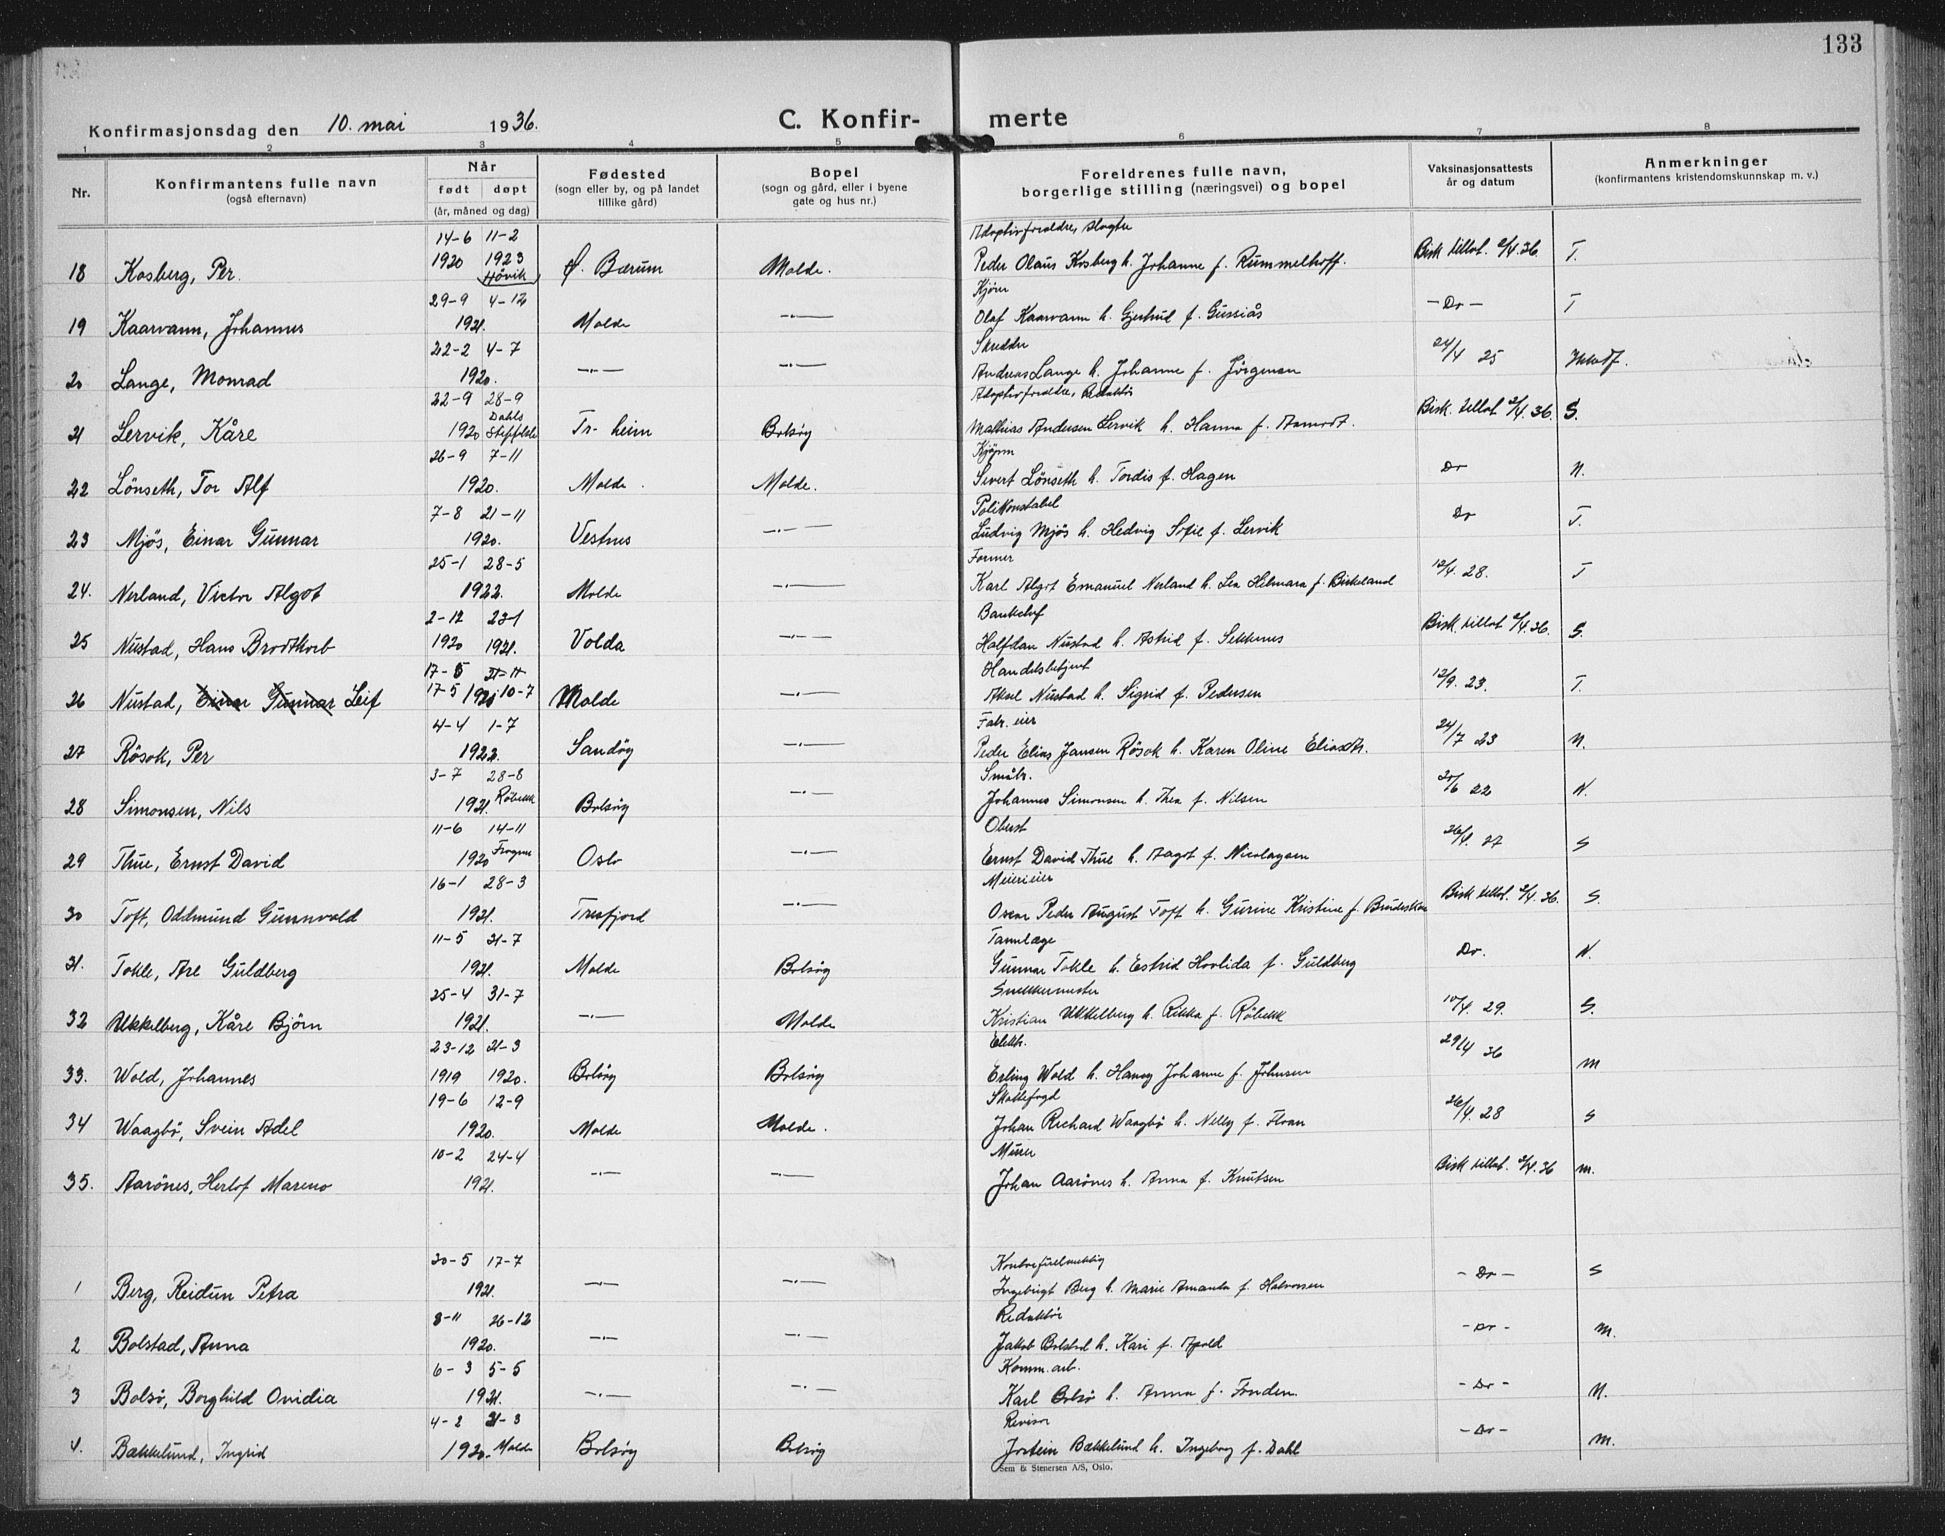 133
Konfirmasjonsdag den 10. mai 1936.
C. Konfir- merte
1 2 3 4 5 6 7 8
Nr.
Konfirmantens fulle navn
(også efternavn)
Når
født døpt
(år, måned og dag)
Fødested
(sogn eller by, og på landet
tillike gård)
Bopel
(sogn og gård, eller i byene
gate og hus nr.)
Foreldrenes fulle navn,
borgerlige stilling (næringsvei) og bopel
Vaksinasjonsattests
år og datum
Anmerkninger
(konfirmantens kristendomskunnskap m. v.)
14-6 11-2 Adoptivforeldre, slagter
18 Kosberg, Per. 1920 1923 Høvik Ø. Bærum Molde. Peder Olaus Kosberg h. Johanne f. Rummelhoff. Bisk. tillat. 2/4.36. T.
29-9 4-12 Kjører
19 Kaarvann, Johannes 1921. Molde -"- Olaf Kaarvann h. Gjertrud f. Gussiås - Do - T
22-2 4-7 Skredder
20 Lange, Monrad 1920. -"- -"- Andreas Lange h. Johanne f. Jörgensen 24/4 25
22-9 28-9 Adoptivforeldre, Redaktör
21 Lervik, Kåre 1920 Dahls Stiftelse Tr-heim Bolsöy Mathias Andersen Lervik h. Hanna f. Aamodt. Bisk. tillat. 2/4.36. S.
26-9 7-11
22 Lönseth, Tor Alf 1920. Molde. Molde. Sivert Lönseth h. Tordis f. Hagen Do N.
7-8 21-11 Politikonstabel
23 Mjös, Einar Gunnar 1920. Vestnes -"- Ludvig Mjös h. Hedvig Sofie f. Lervik Do T.
25-1 28-5 Former
24. Nerland, Victor Algot 1922. Molde -"- Karl Algot Emanuel Nerland h. Lea Helmara f. Birkeland 12/4. 28. T
2-12 23-1 Bankchef
25 Nustad, Hans Brodtkorb 1920 1921. Volda -"- Halfdan Nustad h. Astrid f. Sekknes Bisk. tillat. 2/4.36. S.
17-5 21-11 Handelsbetjent
26 Nustad, Einar Gunnar Leif 17-5 1921 10-7 Molde -"- Aksel Nustad h. Sigrid f. Pedersen 12/9. 23. T.
4-4 1-7 Fabr. eier
27 Rösok, Per 1922. Sandöy -"- Peder Elias Jansen Rösok h. Karen Oline 24/7 23 N.
3-7 28-8 Småbr.
28 Simonsen, Nils 1921. Röbekk Bolsöy -"- Johannes Simonsen h. Thea f. Nilsen 20/6 22 N.
11-6 14-11 Oberst
29 Thue, Ernst David 1920 Frogner Oslo -"- Ernst David Thue h. Aagot f. Nicolaysen 26/4. 27 S
16-1 28-3 Meierieier
30 Toft, Oddmund Gunnvald 1921. Tresfjord -"- Oscar Peder August Toft h. Gurine Kristine f. Brudeskar Bisk. tillat. 2/4.36. S.
11-5 31-7 Tannlæge
31. Tokle, Are Guldberg 1921. Molde Bolsöy Gunnar Tokle h. Estrid Hovlida f. Guldberg Do. N.
25-4 31-7 Snekkermester
32 Ukkelberg, Kåre Björn 1921. -"- Molde Kristian Ukkelberg h. Rikka f. Röbekk 10/4. 29. S.
23-12 21-3 Elektr.
33. Wold, Johannes 1919 1920. Bolsöy Bolsöy Erling Wold h. Hansy Johanne f. Johnsen 29/4 36 M
19-6 12-9 Skattefogd
34 Waagbö, Svein Adel 1920. Molde Molde. Johan Richard Waagbö h. Nelly f. Floan 26/4. 28 S
10-2 24-4 Murer
35. Aarönes, Herlof Mareno 1921. -"- -"- Johan Aarönes h. Anna f. Knutsen Bisk tillat. 2/4. 36 M.
30-5 17-7 Kontorfullmektig
1 Berg, Reidun Petra 1921. -"- -"- Ingebrigt Berg h. Marie Amanda f. Halvorsen - Do - S
8-11 26-12 Redaktör
2 Bolstad, Anna 1920. -"- -"- Jakob Bolstad h. Kari f. Apold - Do - M.
6-3 5-5 Komm. arb.
3 Bolsö, Borghild Ovidia 1921. -"- -"- Karl Bolsö h. Anna f. Fonden. - Do - N.
4-2 21-3 Revisor
4. Bækkelund, Ingrid 1920. Molde Bolsöy Bolsöy Jostein Bækkelund h. Ingeborg f. Dahl - Do - M.
Sem & Stenersen A/S, Oslo.